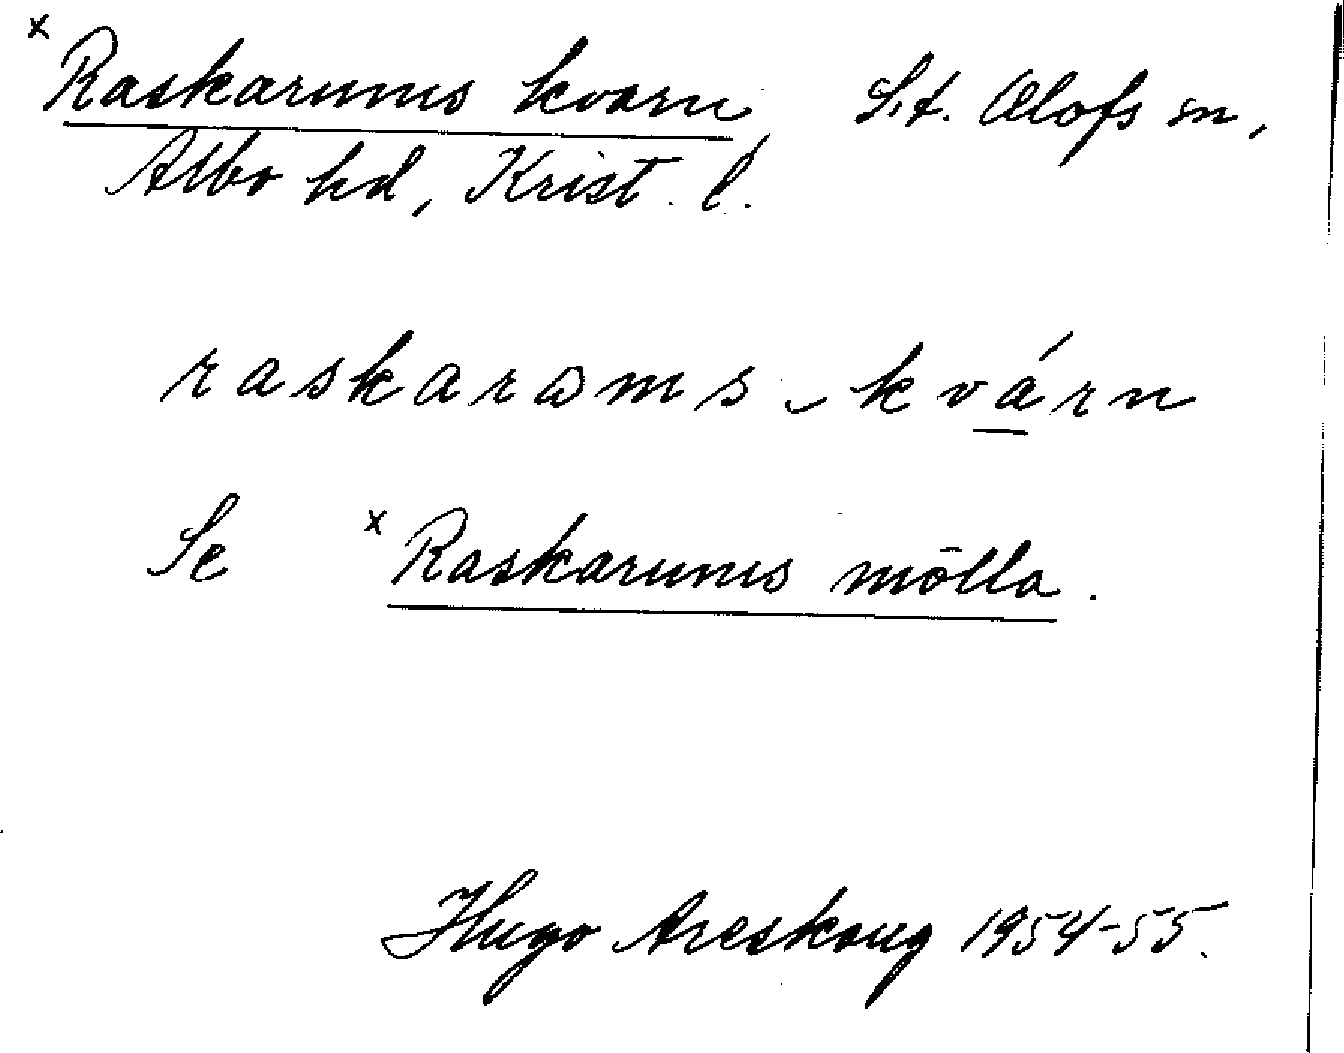 x Raskarums kvarn, S:t. Olofs sn,
Albo hd, Krist. l.
raskaroms-kvárn
Se x Raskarums mölla.
Hugo Areskoug 1954-55.